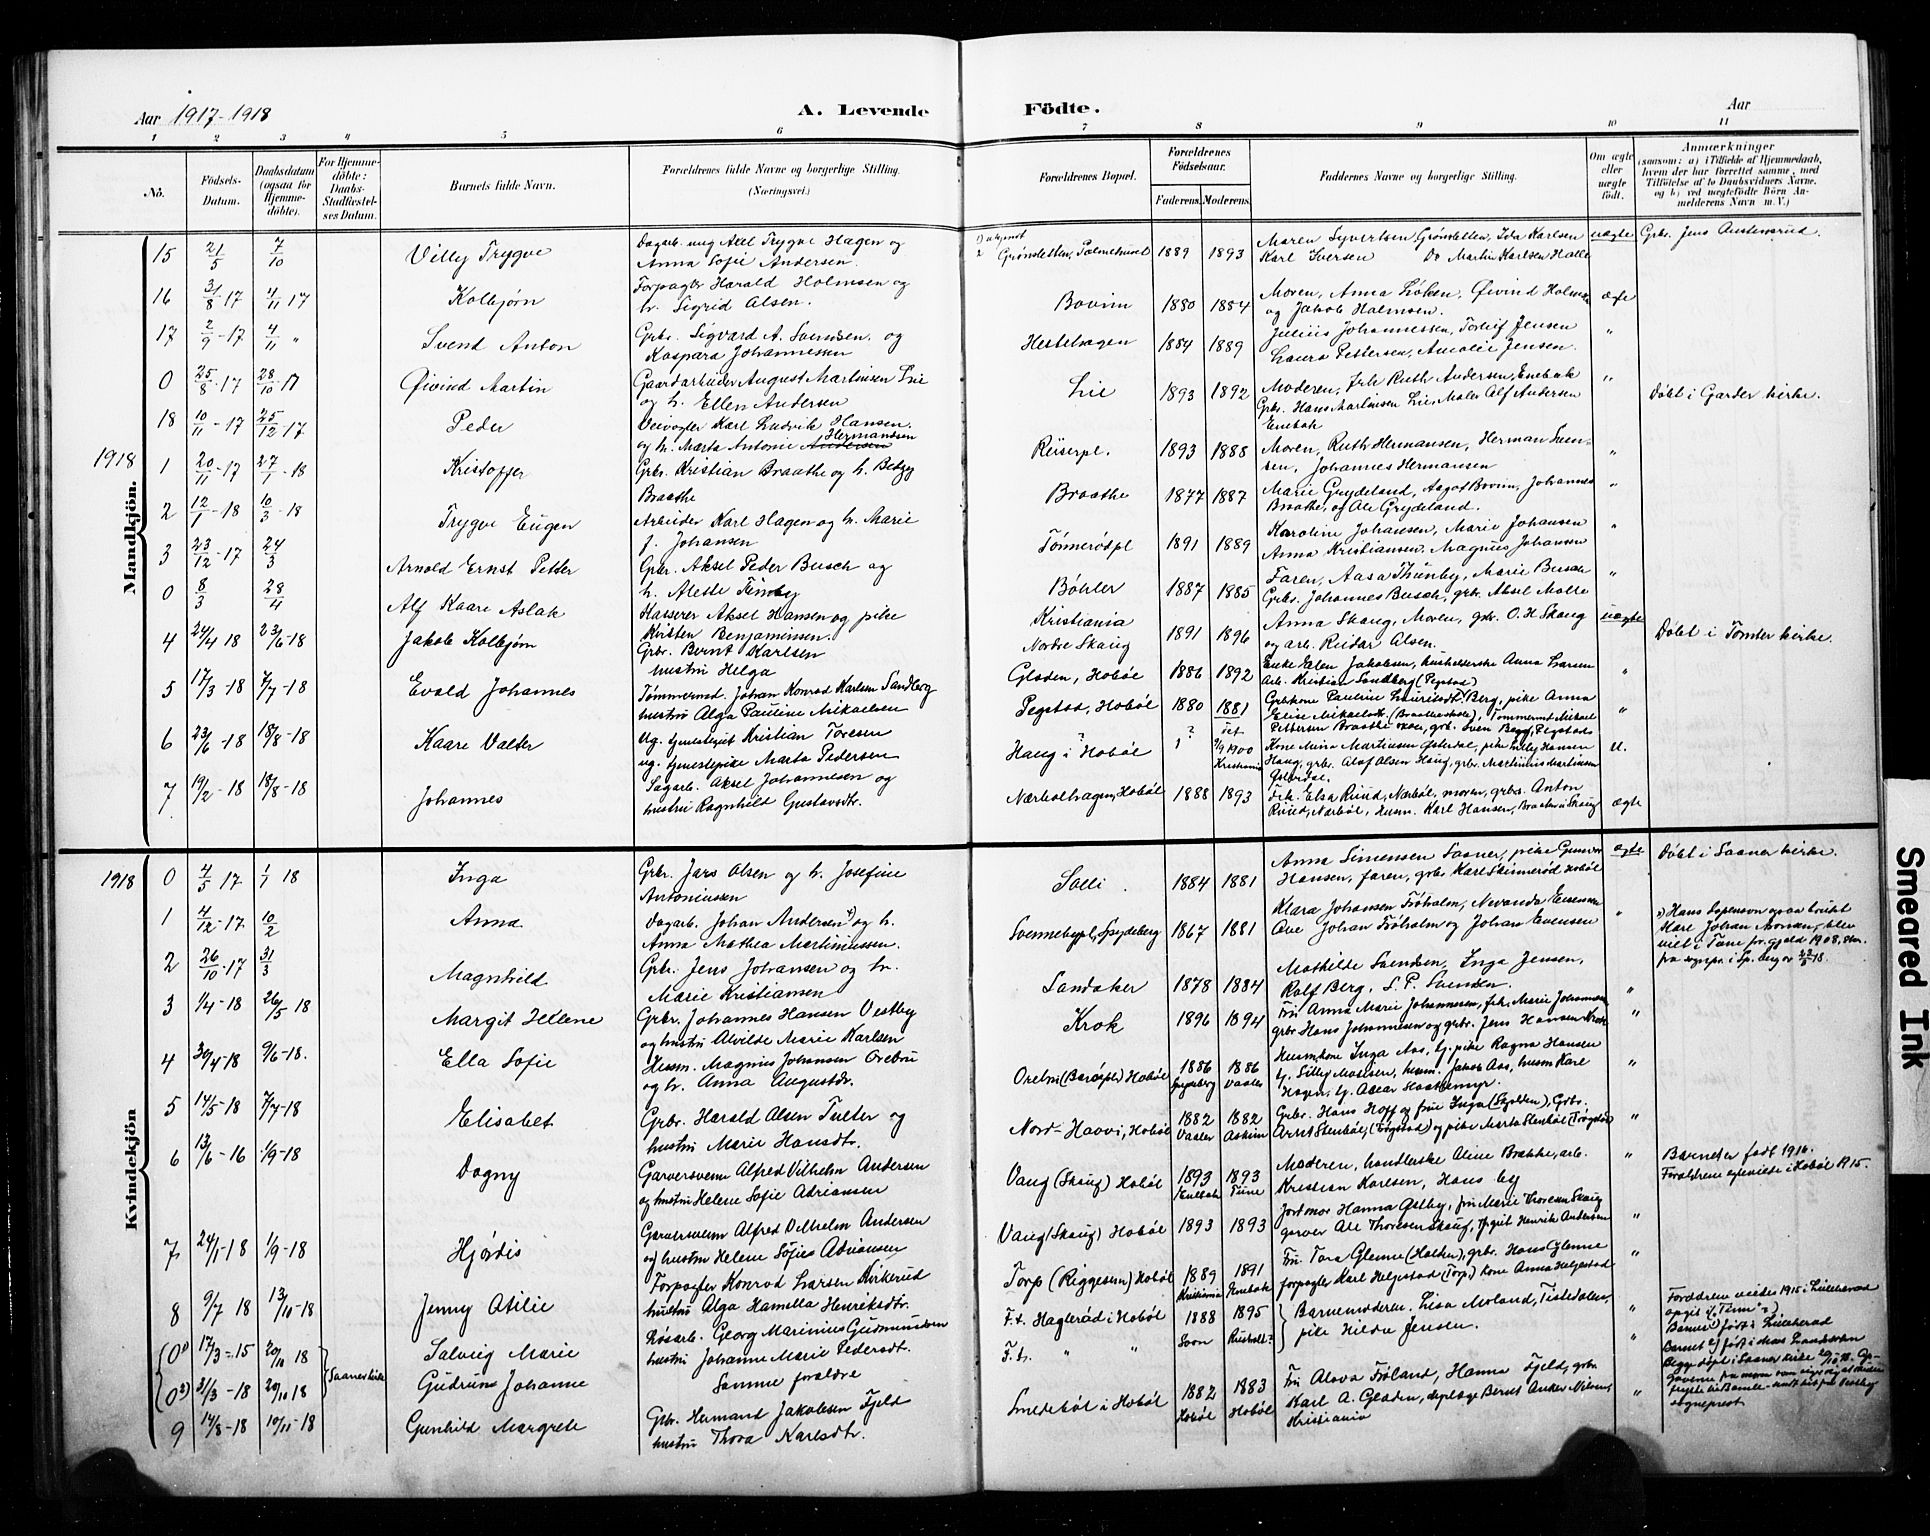 Aar 1917-1918
A. Levende
Födte.
Aar
1 2 3 4 5 6 7 8 9 10 11
No.
Födsels-Datum.
Daabsdatum (ogsaa for Hjemme-döbte).
For Hjemme-döbte: Daabs-Stadfæstel-ses Datum.
Barnets fulde Navn.
Forældrenes fulde Navne og borgerlige Stilling. (Næringsvei.)
Forældrenes Bopæl.
Forældrenes Födselsaar.
Faderens. Moderens.
Faddernes Navne og borgerlige Stilling.
Om ægte eller uægte födt.
Anmærkninger (saasom: a) i Tilfælde af Hjemmedaab, hvem der har forrettet samme, med Tilföielse af to Daabsvidners Navne, og b) ved uægtefödte Börn An-melderens Navn m. V.)
Mandkjön.
15 21/5 7/10 Villy Trygve Dagarb. ung Axel Trygve Hagen og Anna Sofie Andersen. Grønsletten, Palmehuset 1889 1893 Maren Syvertsen Grønsletten, Ida Karlsen Karl Iversen Do Martin Karlsen Holle uægte Grbr. Jens Austensrud.
16 31/8 17 4/11 17 Kolbjørn Forpagter Harald Holmsen og h. Sigrid Olsen. Bovim 1880 1884 Moren, Anna Løken, Øivind Holmsen og Jakob Holmsen. ægte
17 2/9-17 4/11 " Svend Anton Grbr. Sigvard A. Svendsen og Kaspara Johannessen Hestehagen 1884 1889 Julius Johannessen, Torleif Jensen Laura Pettersen, Amalie Jensen. "
0 25/8-17 28/10 17 Øivind Martin Gaardarbeider August Martinsen Lie og h. Ellen Andersen Lie 1893 1892 Moderen, frk Ruth Andersen, Enebak Grbr. Hans Martinsen Lie, Maler Alf Andersen Enebak " Döbt i Garder kirke.
18 10/11-17 25/12 17 Peder Veivogter Karl Ludvik Hansen. og h. Marta Antonie Andersen Hermansen Reiserpl. 1893 1888 Moren, Ruth Hermansen, Herman Svendsen, Johannes Hermansen "
1918 1 20/11-17 27/1-18 Kristoffer Grbr. Kristian Braathe og h. Betzy Braathe Braathe 1877 1887 Marie Grydeland, Aagot Bovim, Johannes Braathe, og Ole Grydeland. "
2 12/1-18 10/3-18 Trygve Eugen Arbeider Karl Hagen og h. Marie f. Johansen Tönnerödpl 1891 1889 Karoline Johansen, Marie Johansen Anna Kristiansen, Magnus Johansen "
3 23/12-17 24/3 Arnold Ernst Petter Grbr. Aksel Peder Busch og h. Alette Timby Böhler 1887 1885 Faren, Aasa Thunby, Marie Busch Grbr. Johannes Busch, grbr. Aksel Molte "
0 8/3 28/4 Alf Kaare Aslak Kasserer Aksel Hansen og pike Kristen Benjaminsen. Kristiania Nordre Skaug 1891 1896 Anna Skaug, Moren, gbr. O. H. Skaug og arb. Reidar Olsen. uægte Döbt i Tomter kirke.
4 24/4 18 23/6-18 Jakob Kolbjørn Grbr. Bernt Karlsen hustru Helga Gladen, Hobøl 1886 1892 Enke Elen Jakobsen, husholderske Anna Larsen Arb. Kristian Sandberg (Pegstad) "
5 17/3-18 7/7-18 Evald Johannes Tömmermd. Johan Konrad Karlsen Sandberg hustru Alga Pauline Mikaelsen Pegstad, Hobøl 1880 1881 Elise Mikaelsdtr. (Braatheskole), Tömmermd Mikael Pettersen "
6 23/6-18 18/8-18 Kaare Valter Ug. tjenestegut Kristian Toresen ug. tjenestepike Marta Pedersen Haug i Hobøl ? 9/9 1900 Kristiania Kone Mina Martinsen Österdal, pike Lilly Hansen Haug, grbr. Olaf Olsen Haug, grbr. Martinius Martinsen Österdal. U.
7 19/2-18 18/8-18 Johannes Sagarb. Aksel Johannesen og hustru Ragnhild Gustavsdtr. Nærbølhagen, Hobøl 1888 1893 Frk. Elsa Ruud, Nærbøl, moren, grbr. Anton Ruud, Nærbøl, Husm. Karl Hansen, Braaten i Skaug ægte
Kvindekjön
1918 0 4/5 17 1/1 18 Inga Grbr. Lars Olsen og h. Josefine Antoniussen Solli 1884 1881 Anna Simensen Saaner, pike Gunvor Hansen, faren, grbr Karl Skinnerød Hobøl ægte Döbt i Saaner kirke.
1 4/12-17 10/2 Anna Dagarb. Johan Andersen og h. Anna Mathea Martinussen. Svennebypl, Spydeberg 1867 1881 Klara Johansen Fröholm, Nevanda Evensen Ove Johan Fröholm og Johan Evensen "
2 26/10-17 31/3 Magnhild Grbr. Jens Johansen og h. Marie Kristiansen Sandaker 1878 1884 Mathilde Svendsen, Inga Jensen, Rolf Berg, S. P. Svendsen "
3 1/4-18 26/5 18 Margit Helene Grbr. Johannes Hansen Vestby og hustru Alvilde Marie Karlsen Krok 1896 1894 Fru Anna Marie Johannesen, frk. Marie Johannesen grbr Hans Johannesen og grbr. Jens Hansen Krok "
4 30/4-18 9/6-18. Ella Sofie Husm. Magnus Johansen Orebru og h. Anna Augustdr. Orebru (Barøpl) Hobøl 1886 Spydeberg 1886 Vaaler Husm.kone Inga Aas, tj. pike Ragna Hansen tj. Lilly Madsen, husm. Jakob Aas, husm Karl Hagen, tj. Oscar "
5 14/5-18 7/7-18 Elisabet Grbr. Harald Olsen Tveter og hustru Marie Hansdtr. Nord-Haavi, Hobøl 1882 Vaaler 1882 Askim Grbr. Hans Hoff og frue Inga (Skjolden), Grbr. Arnt Stenbøl, (Trøgstad) og pike Marta Stenbøl (Trøgstad) "
6 13/6-16 1/9-18 Dagny Garversvenn Alfred Vilhelm Andersen og hustru Helene Sofie Adriansen Vaug (Skaug) Hobøl 1893 Enebak 1893 Tune Moderen, handlerske Aline Brakke, arb. Kristian Karlsen, Hans by " Barnet er født 1916. Forældrene egteviede i Hobøl 1915.
7 24/1-18 1/9-18 Hjørdis Garversvenn Alfred Vilhelm Andersen og hustru Helene Sofie Adriansen Vaug (Skaug) Hobøl 1893 1893 Jordmor Hanna Østby, fru Marie Thoresen Skaug garver Ole Thoresen Skaug, Henrik Andersen "
8 9/7 18 13/10-18 Jenny Otilie Forpagter Konrad Larsen Kirkerud hustru Alga Hamilla Henriksdtr. Torp (Riggesem) Hobøl 1889 Kristiania 1891 Enebak Fru Tora Glenne (Holter), grbr. Hans Glenne forpagter Karl Helgestad (Torp) kone Anna Helgestad "
(0¹) 17/3-15 20/10 18 Saaner kirke Solveig Marie Løsarb. Georg Marinius Gudmundsen hustru Johanne Marie Pedersdt. F. t. Haglerød i Hobøl 1888 Soon 1895 Barnemoderen. Lisa Moland, Tistedalen, pike Hilda Jensen. " Forældrene viedes 1915 i Lilleherad
(0²) 31/3-18 20/10 18 Gudrun Johanne Samme forældre F. t. " " "
9 14/8-18 10/11-18 Gunhild Margrete Gbr. Hermand Jakobsen Fjeld hustru Thora Karlsdtr. Smedebøl i Hobøl 1882 Hobøl 1883 Hobøl Fru Alova Frøland, Hanna Fjeld, grbr. Karl A. Gladen, Bernt Anker Nilsen, Kristiania "
Smeared Ink